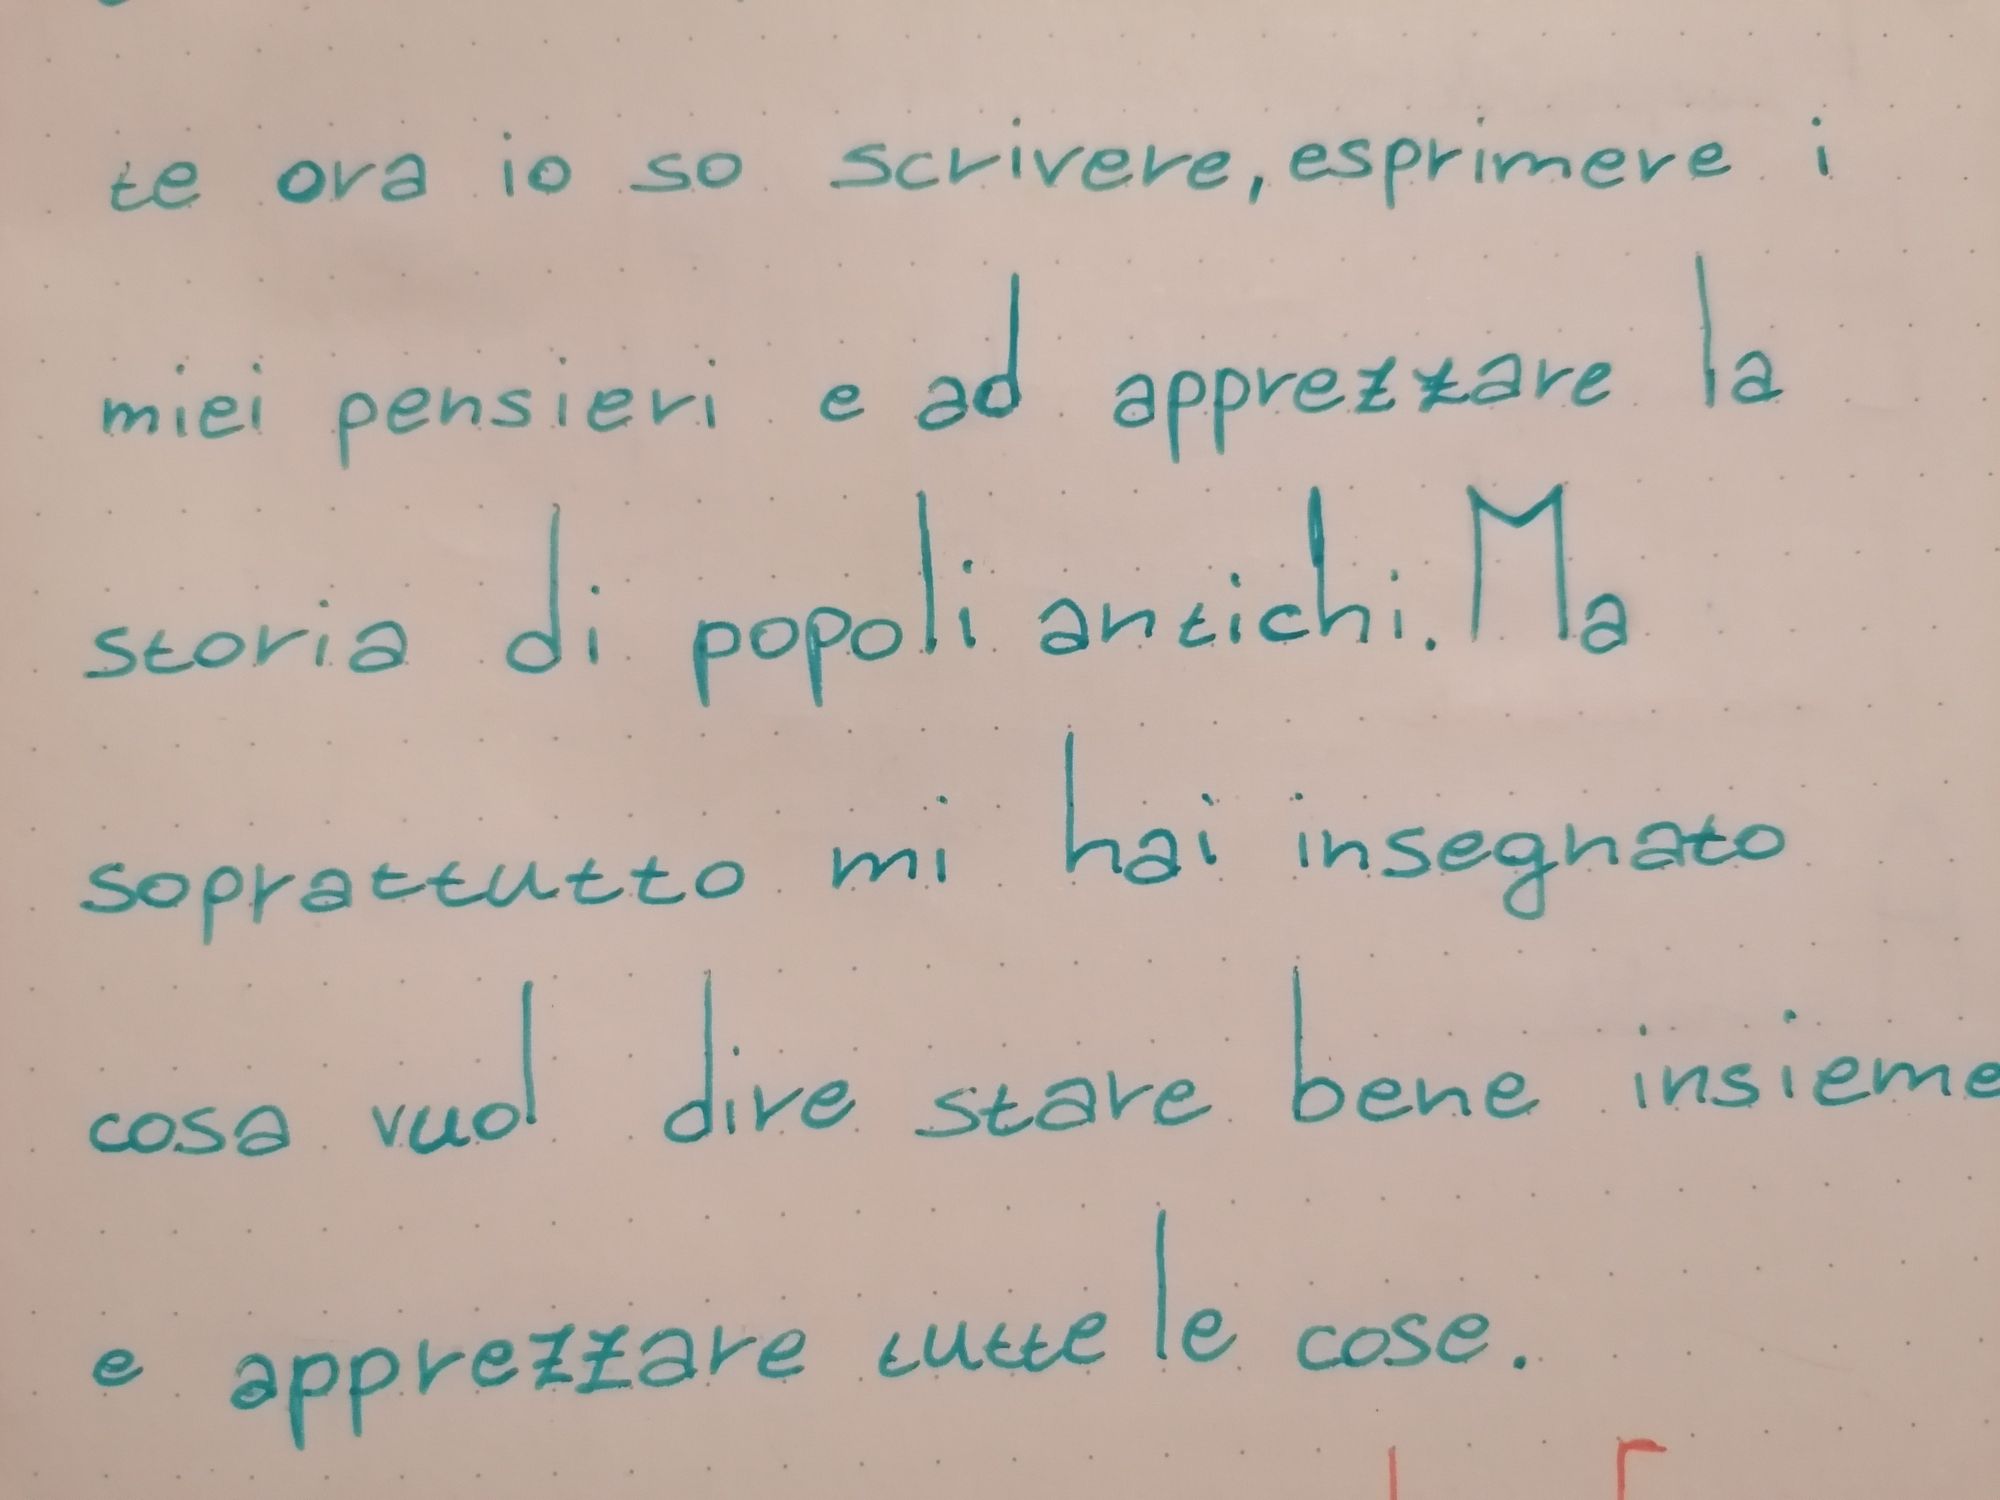 te ora io so scrivere, esprimere i
miei pensieri e ad apprezzare la
storia di popoli antichi. Ma
soprattutto mi hai insegnato
cosa vuol dire stare bene insieme
e apprezzare tutte le cose.